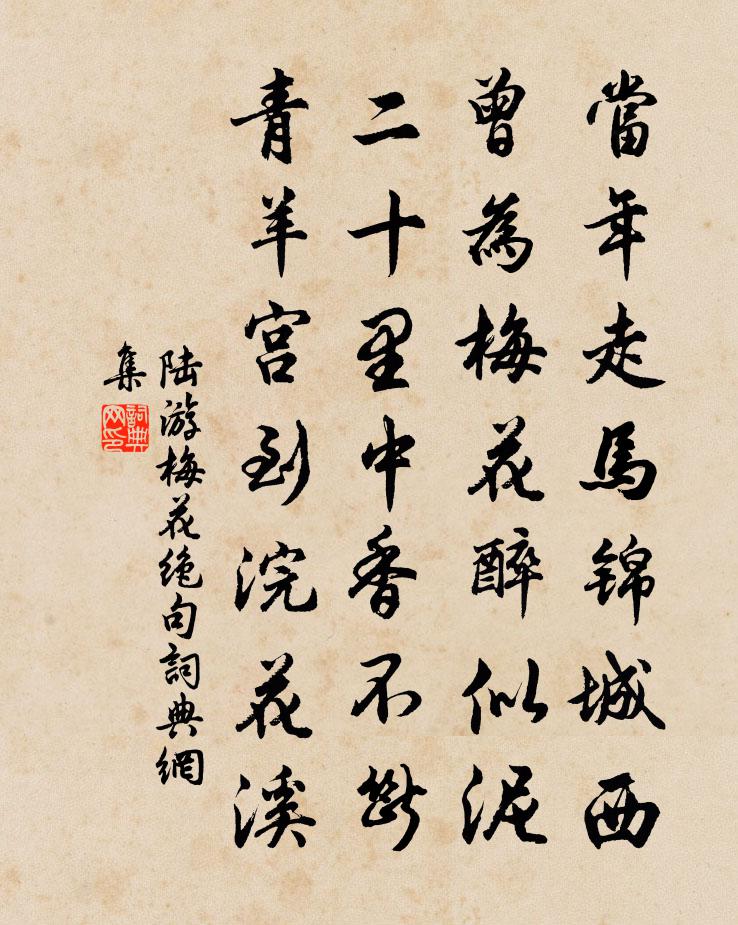 當年走馬錦城西
曾為梅花醉似泥
二十里中香不斷
青羊宮到浣花溪
陸游梅花絶句詞典網
集
詞典
网印